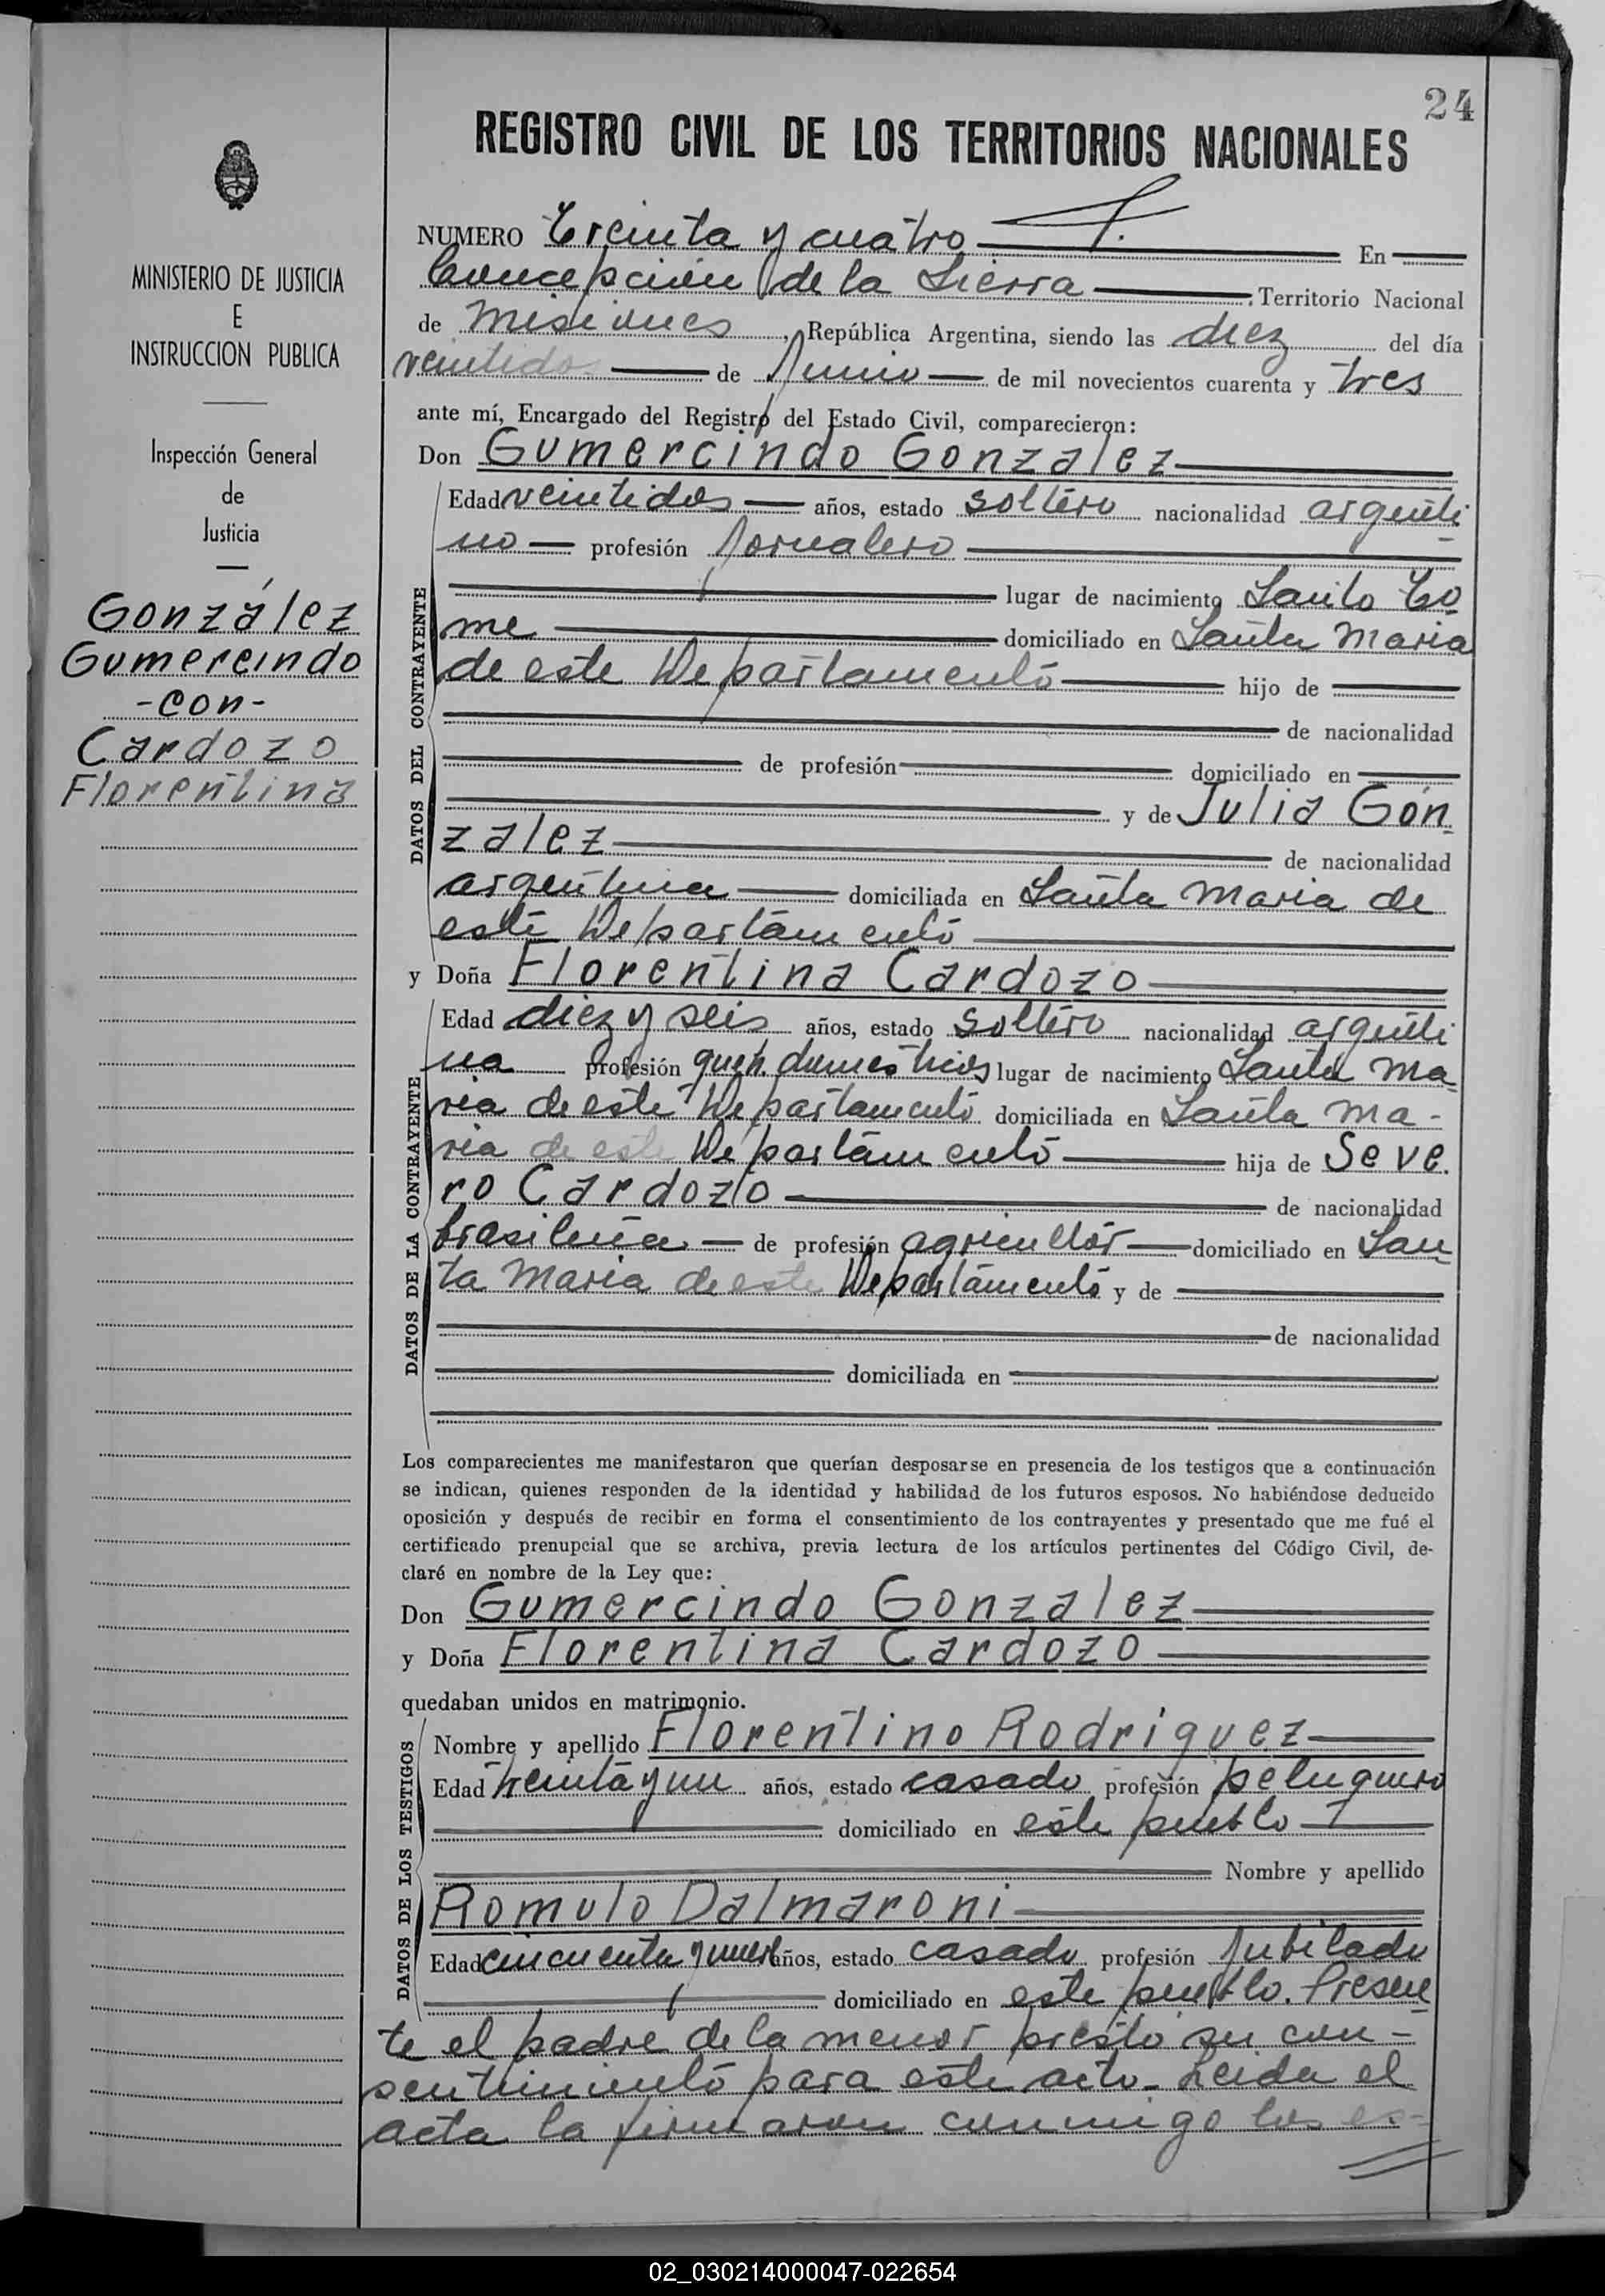 24
REGISTRO CIVIL DE LOS TERRITORIOS NACIONALES
MINISTERIO DE JUSTICIA
E
INSTRUCCION PUBLICA
Inspección General
de
Justicia
González
Gumercindo
-con-
Cardozo
Florentina
NUMERO Treinta y cuatro En
Concepción de la Sierra Territorio Nacional
de Misiones, República Argentina, siendo las diez del día
veintidos de Junio de mil novecientos cuarenta y tres
ante mí, Encargado del Registro del Estado Civil, comparecieron:
Don Gumercindo Gonzalez
DATOS DEL CONTRAYENTE
Edad veintidos años, estado soltero nacionalidad argenti
no profesión Jornalero
lugar de nacimiento Santo To
me domiciliado en Santa Maria
de este Departamento hijo de
de nacionalidad
de profesión domiciliado en
y de Julia Gon
zalez de nacionalidad
argentina domiciliada en Santa Maria de
este Departamento
y Doña Florentina Cardozo
DATOS DE LA CONTRAYENTE
Edad diez y seis años, estado soltero nacionalidad argenti
na profesión queh. domesticos lugar de nacimiento Santa Ma
ria de este Departamento domiciliada en Santa Ma-
ria de este Departamento hija de Seve
ro Cardozo de nacionalidad
brasileña de profesión agricultor domiciliado en San
ta Maria de este Departamento y de
de nacionalidad
domiciliada en
Los comparecientes me manifestaron que querían desposarse en presencia de los testigos que a continuación
se indican, quienes responden de la identidad y habilidad de los futuros esposos. No habiéndose deducido
oposición y después de recibir en forma el consentimiento de los contrayentes y presentado que me fué el
certificado prenupcial que se archiva, previa lectura de los artículos pertinentes del Código Civil, de-
claré en nombre de la Ley que:
Don Gumercindo Gonzalez
y Doña Florentina Cardozo
quedaban unidos en matrimonio.
DATOS DE LOS TESTIGOS
Nombre y apellido Florentino Rodriguez
Edad treinta y un años, estado casado profesión peluquero
domiciliado en este pueblo
Nombre y apellido
Romulo Dalmaroni
Edad cincuenta y años, estado casado profesión Jubilado
domiciliado en este pueblo. Presen
te el padre de la menor presto su con-
sentimiento para este acto. Leida el
acta la firmaron conmigo los es-
02_030214000047-022654